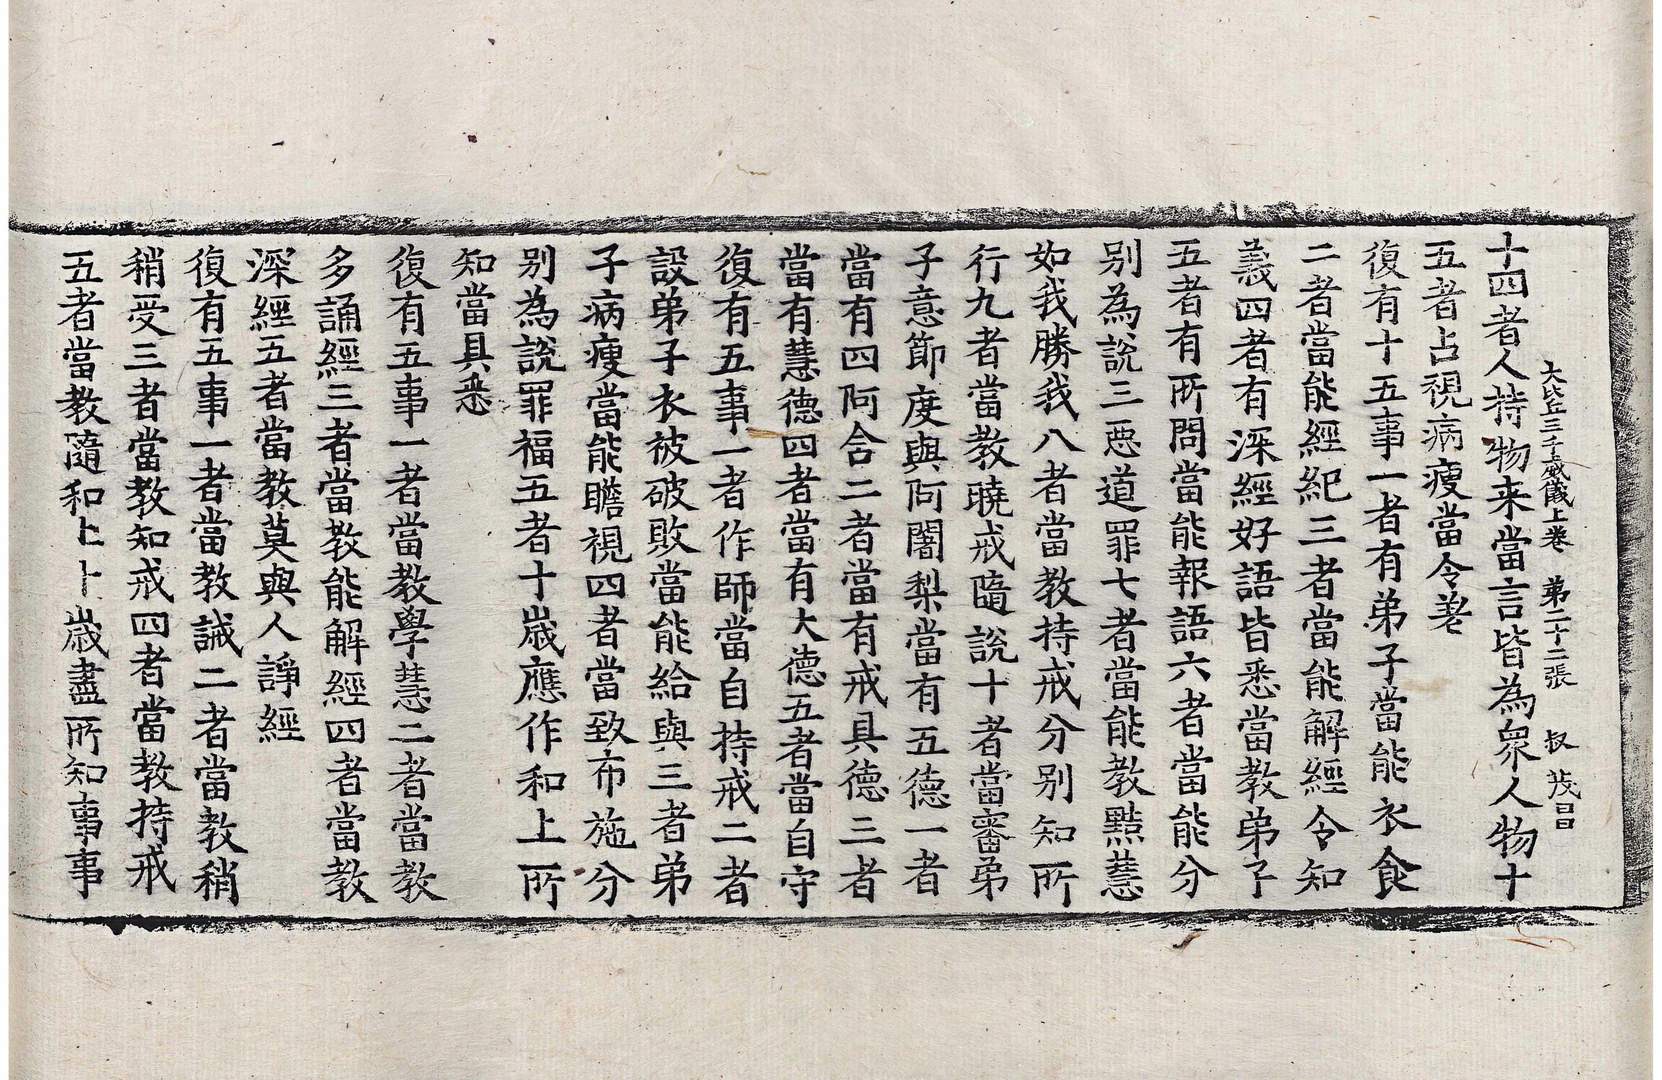 大比丘三千威儀上卷　第二十二張　叔　茂昌
十四者人持物来當言皆為衆人物十
五者占視病瘦當令差
復有十五事一者有弟子當能衣食
二者當能經紀三者當能解經令知
義四者有深經好語皆悉當教弟子
五者有所問當能報語六者當能分
别為說三惡道罪七者當能教黠慧
如我勝我八者當教持戒分别知所
行九者當教曉戒隨說十者當審弟
子意節度與阿闍梨當有五德一者
當有四阿含二者當有戒具德三者
當有慧德四者當有大德五者當自守
復有五事一者作師當自持戒二者
設弟子衣被破敗當能給與三者弟
子病瘦當能瞻視四者當致布施分
别為說罪福五者十歲應作和上所
知當具悉
復有五事一者當教學慧二者當教
多誦經三者當教能解經四者當教
深經五者當教莫與人諍經
復有五事一者當教誡二者當教稍
稍受三者當教知戒四者當教持戒
五者當教隨和上十歲盡所知事事